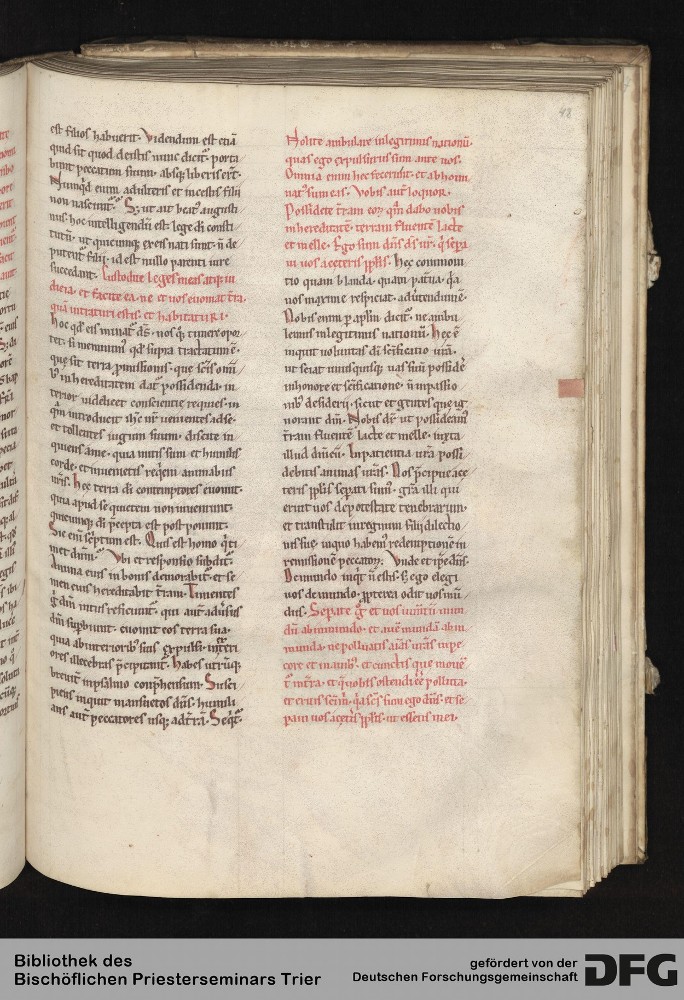 est filios habuerit. Videndum est etiā
quid sit quod de istis nunc dicit᷑. porta
bunt peccatum suum. absq; liberis er̄t.
Nunquid enim adulteris et incestis filii
non nascunt᷑. S; ut ait beatꝰ augusti
nus. hoc intelligendū est lege dī consti
tutū. ut quicunq; ex eis nati sunt. n̄ de
putent᷑ filii. id est nullo parenti iure
succedant. Custodite leges meas atq; iu
dicia. et facite ea. ne et uos euomat t̄ra.
quā intraturi estis. et habitaturi.
Hoc qd́ eis minat᷑ dś. nos q̊q; timere opor
tet. si meminimꝰ qd́ supra tractatum ē.
que sit terra ꝓmissionis. que sc̄is omī
bꝰ in hereditatem dat᷑ possidenda. in
terior uidelicet conscientie requies. in
qm̄ introducit ihc̄ nr̄ uenientes ad se.
et tollentes iugum suum. discite in
quiens a me. quia mitis sum et humilis
corde. et inuenietis reqēm animabus
ur̄is. Hec terra dī contemptores euomit.
quia apud se quietem non inueniunt.
quicunq; dī p̄cepta est post ponunt.
Sic enī sc̄ptum est. Quis est homo q̇ ti
met dnm̄. Ubi et responsio subdit᷑.
Anima eius in bonis demorabit᷑. et se
men eius hereditabit t̄ram. Timentes
g̊ dnm̄ intus reficiunt᷑. qui aut̄ aduersus
dnm̄ supbiunt. euomit eos terra sua.
quia ab interiorib; suis expulsi. in ext̄i
ores illecebras p̄cipitant᷑. Habes utrūq;
breuit̄ in psalmo conp̄hensum. Susci
piens inquit mansuetos dn̄s. humili
ans aut̄ peccatores usq; ad t̄rā. Seq̇t᷑.
Nolite ambulare in legitimis nationū.
quas ego expulsurus sum ante uos.
Omnia enim hec fecerunt. et abhomi
natꝰ sum eas. Vobis aut̄ loquor.
Possidete t̄ram eorꝫ. qm̄ dabo uobis
in hereditatē. terram fluentē lacte
et melle. Ego sum dn̄s dś ur̄. q̇ sepa
ui uos a ceteris ppl̄is. Hec commoni
tio quam blanda. quam pat̄na. q̊ā
nos maxime respiciat. aduertendum ē.
Nobis enim p apl̄m dicit᷑. ne ambu
lemus in legitimis nationū. Hec ē
inquit uoluntas dī sc̄ificatio ur̄a.
ut sciat unusquisq; uas suū possidē
in honore et sc̄ificatione. n̄ in passio
nibꝰ desiderii. sicut et gentes que ig
norant dm̄. Nobis dr̄ ut possideamꝰ
t̄ram fluentē lacte et melle. iuxta
illud dnīcū. In patientia ur̄a possi
debitis animas ur̄as. Nos p̄cipue a ce
teris ppl̄is sepati sumꝰ. gr̄a illi qui
eruit nos de potestate tenebrarum.
et transtulit in regnum filii dilectio
nis sue. in quo habemꝰ redemptionē in
remissionē peccatorꝫ. Vnde et ip̄e dic̄.
De mundo inq̇t n̄ estis. s; ego elegi
uos de mundo. ꝓpterea odit uos mū
dus. Separate g̊ et uos iumtū mun
dū ab inmundo. et auē mundā ab in
munda. ne polluatis aīas ur̄as in pe
core et in auibꝰ. et cunctis que mouē
t᷑ in t̄ra. et q̄ uobis ostendi eē polluta.
et eritis sc̄i m̄. q̇a sc̄s sum ego dn̄s. et se
paui uos a cet̄is ppl̄is. ut essetis mei.
48
Bibliothek des
Bischöflichen Priesterseminars Trier
gefördert von der
Deutschen Forschungsgemeinschaft
DFG